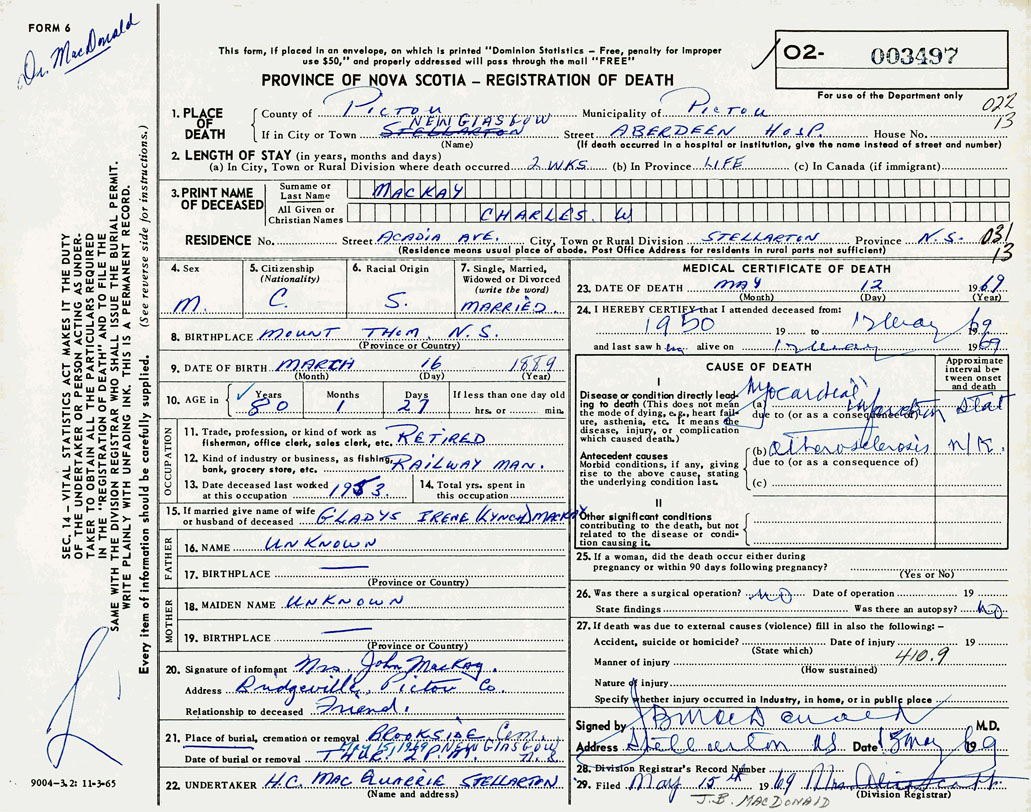 FORM 6
Dr. MacDonald
This form, if placed in an envelope, on which is printed "Dominion Statistics – Free, penalty for improper
use $50," and properly addressed will pass through the mail "FREE"
PROVINCE OF NOVA SCOTIA – REGISTRATION OF DEATH
O2- 003497
For use of the Department only
022
13
1. PLACE OF DEATH
County of PICTOU Municipality of PICTOU
NEW GLASGOW
If in City or Town STELLARTON Street ABERDEEN HOSP. House No.
(Name) (If death occurred in a hospital or institution, give the name instead of street and number)
2. LENGTH OF STAY (in years, months and days)
(a) In City, Town or Rural Division where death occurred 2 WKS (b) In Province LIFE (c) In Canada (if immigrant)
3. PRINT NAME OF DECEASED
Surname or Last Name MACKAY
All Given or Christian Names CHARLES. W
RESIDENCE No. Street ACADIA AVE. City, Town or Rural Division STELLARTON Province N.S. 031
13
(Residence means usual place of abode. Post Office Address for residents in rural parts not sufficient)
4. Sex M.
5. Citizenship (Nationality) C.
6. Racial Origin S.
7. Single, Married, Widowed or Divorced (write the word) MARRIED.
8. BIRTHPLACE MOUNT THOM, N.S.
(Province or Country)
9. DATE OF BIRTH MARCH 16 1889
(Month) (Day) (Year)
10. AGE in Years 80 Months 1 Days 27 If less than one day old
hrs. or min.
OCCUPATION
11. Trade, profession, or kind of work as fisherman, office clerk, sales clerk, etc. RETIRED
12. Kind of industry or business, as fishing, bank, grocery store, etc. RAILWAY MAN.
13. Date deceased last worked at this occupation 1953
14. Total yrs. spent in this occupation
15. If married give name of wife or husband of deceased GLADYS IRENE (LYNCH) MACKAY
FATHER
16. NAME UNKNOWN
17. BIRTHPLACE
(Province or Country)
MOTHER
18. MAIDEN NAME UNKNOWN
19. BIRTHPLACE
(Province or Country)
20. Signature of informant Mrs. John MacKay.
Address Bridgeville, Pictou Co.
Relationship to deceased Friend.
21. Place of burial, cremation or removal BROOKSIDE Cem.
May 15, 1969 NEW GLASGOW
Date of burial or removal N.S.
22. UNDERTAKER H.C. MAC QUARRIE STELLARTON
(Name and address)
MEDICAL CERTIFICATE OF DEATH
23. DATE OF DEATH MAY 12 1969
(Month) (Day) (Year)
24. I HEREBY CERTIFY that I attended deceased from:
1950 19 to 12 May 1969
and last saw him alive on 12 May 1969
CAUSE OF DEATH
Approximate interval between onset and death
I
Disease or condition directly leading to death (This does not mean the mode of dying, e.g., heart failure, asthenia, etc. It means the disease, injury, or complication which caused death.)
(a) Myocardial Infarction Stat
due to (or as a consequence of)
Antecedent causes
Morbid conditions, if any, giving rise to the above cause, stating the underlying condition last.
(b) Atherosclerosis N/K.
due to (or as a consequence of)
(c)
II
Other significant conditions
contributing to the death, but not related to the disease or condition causing it.
25. If a woman, did the death occur either during pregnancy or within 90 days following pregnancy?
(Yes or No)
26. Was there a surgical operation? NO Date of operation 19
State findings Was there an autopsy? No
27. If death was due to external causes (violence) fill in also the following: –
Accident, suicide or homicide? Date of injury 19
(State which)
410.9
Manner of injury
(How sustained)
Nature of injury
Specify whether injury occurred in industry, in home, or in public place
Signed by JB MacDonald M.D.
Address Stellarton NS Date 15 May 1969
28. Division Registrar's Record Number
29. Filed May 15th 1969 Mrs.
(Division Registrar)
J.B. MACDONALD
SEC. 14 – VITAL STATISTICS ACT MAKES IT THE DUTY
OF THE UNDERTAKER OR PERSON ACTING AS UNDER-
TAKER TO OBTAIN ALL THE PARTICULARS REQUIRED
IN THE "REGISTRATION OF DEATH" AND TO FILE THE
SAME WITH THE DIVISION REGISTRAR WHO SHALL ISSUE THE BURIAL PERMIT.
WRITE PLAINLY WITH UNFADING INK. THIS IS A PERMANENT RECORD.
Every item of information should be carefully supplied. (See reverse side for instructions.)
9004-3.2: 11-3-65